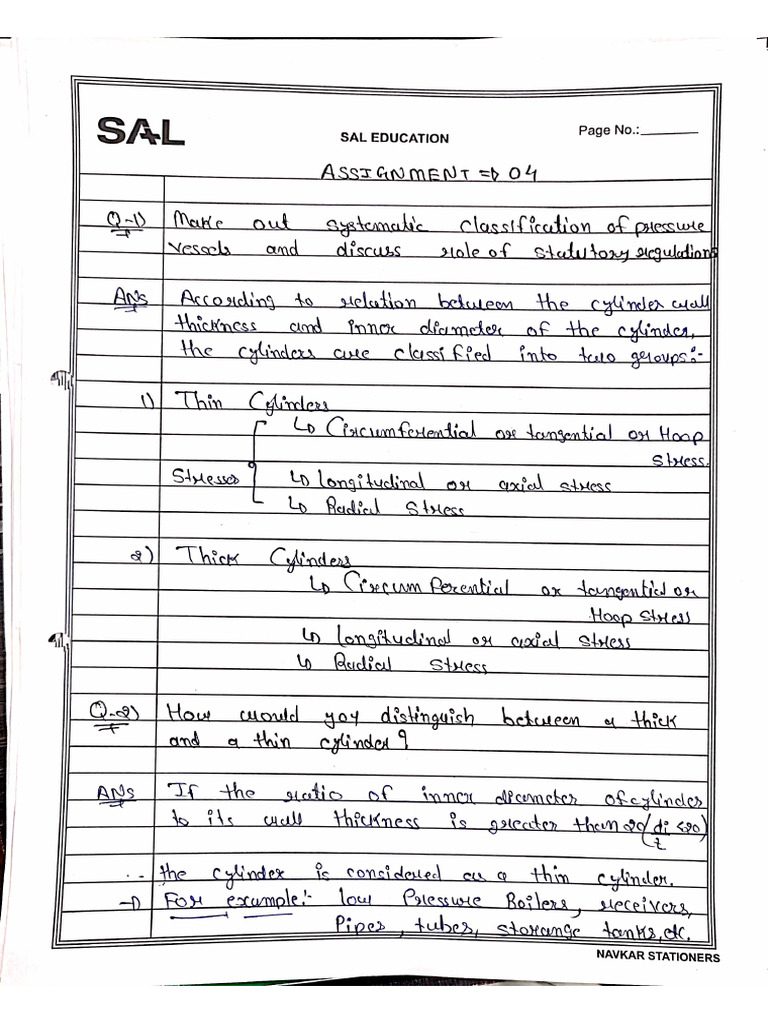 SAL
SAL EDUCATION
Page No.:
ASSIGNMENT ⇒ 04
Q-1) Make out systematic classification of pressure
vessels and discuss role of statutory regulations
ANS According to relation between the cylinder wall
thickness and inner diameter of the cylinder,
the cylinders are classified into two groups:-
1) Thin Cylinders
↳ Circumferential or tangential or Hoop
Stress.
Stresses ↳ longitudinal or axial stress
↳ Radial Stress
2) Thick Cylinders
↳ Circumferential or tangential or
Hoop Stress
↳ longitudinal or axial stress
↳ Radial stress
Q-2) How would you distinguish between a thick
and a thin cylinder?
ANS If the ratio of inner diameter of cylinder
to its wall thickness is greater than 20 (di/t <20)
∴ the cylinder is considered as a thin cylinder.
→ For example:- low Pressure Boilers, receivers,
Pipes, tubes, storange tanks, etc.
NAVKAR STATIONERS